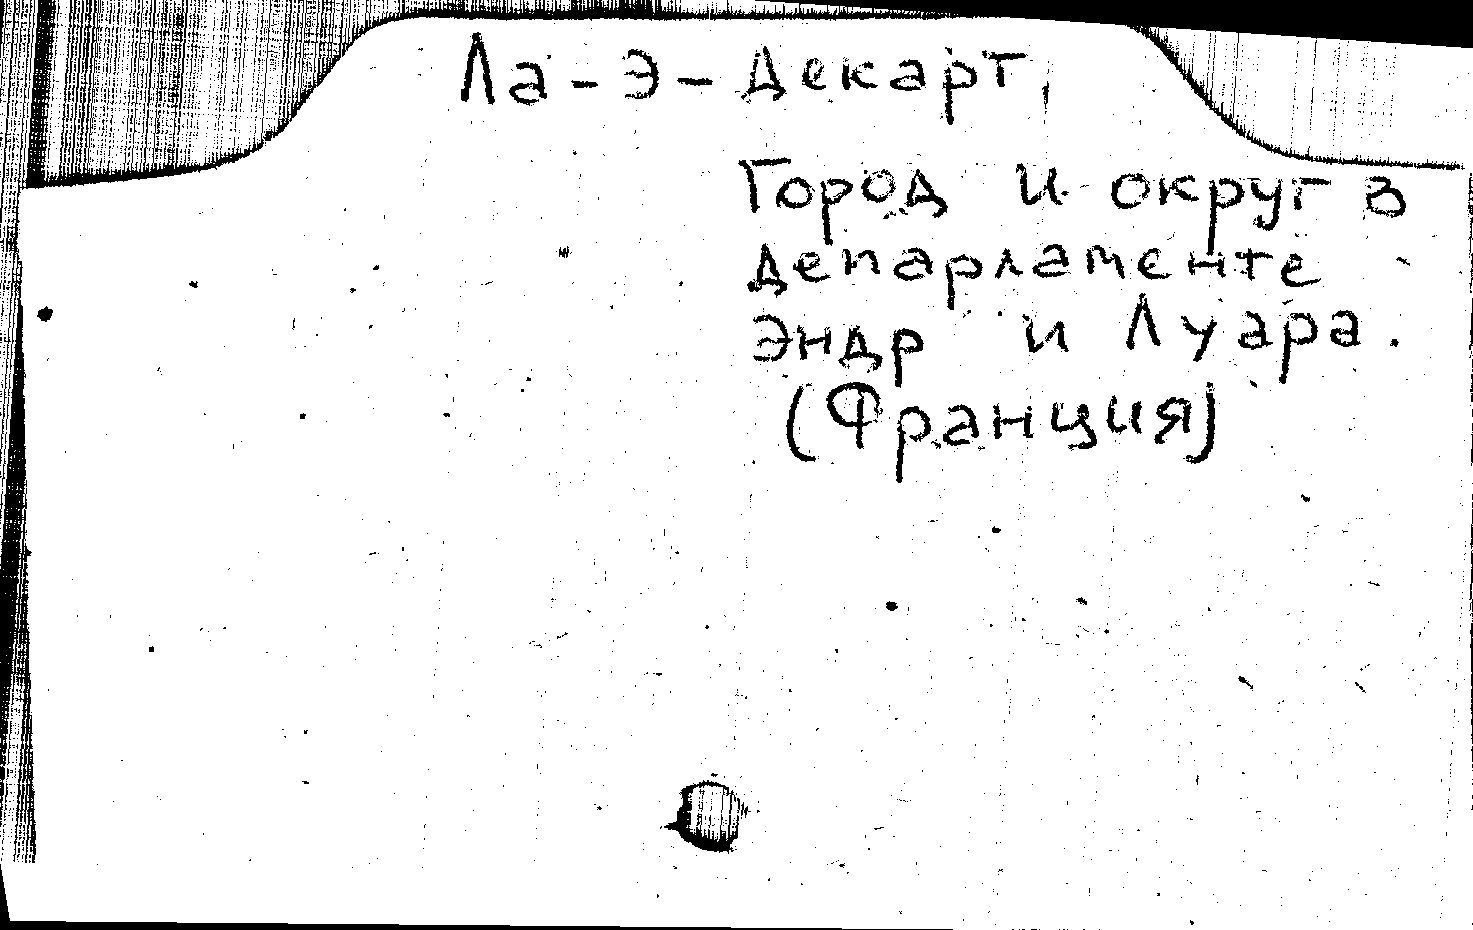 Ла-Э-Декарт,
Город и округ в
департаменте
Эндр и Луара.
(Франция)